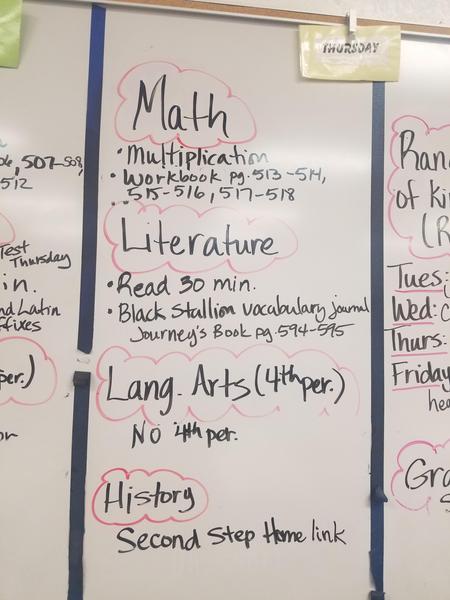 THURSDAY
Math
• Multiplication
• Workbook pg. 513-514,
515-516, 517-518
Literature
• Read 30 min.
• Black Stallion vocabulary journal
Journey's Book pg. 594-595
Lang. Arts (4th per.)
No 4th per.
History
Second Step Home link
507-508,
512
Test
Thursday
in.
nd Latin
ffixes
per.)
or
Ran
of ki
(R
Tues:
Wed:
Thurs:
Friday
he
Gra